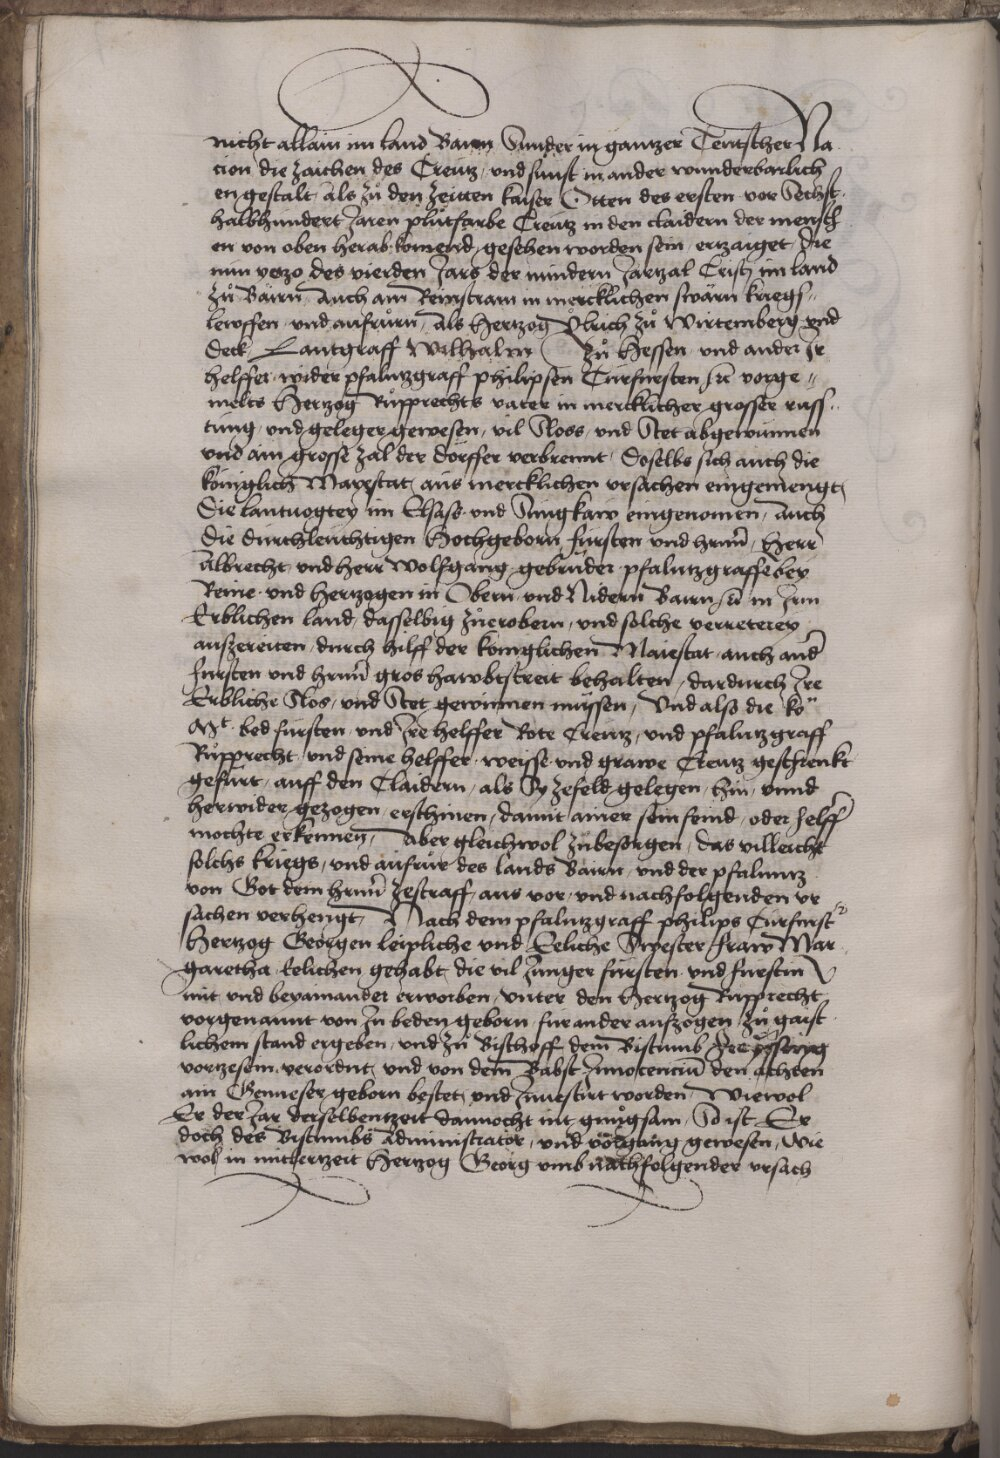 nicht allain im land Bairn Sunder in gantzer Teutscher Na
cion die zaichen des Creutz, vnd sunst in ander wunderbarlich
en gestalt als zů den zeitten kaiser Otten des ersten vor Sechst
halbhundert Jaren plůtfarbe Creutz in den claidern der mensch
en von oben herab komend gesehen worden sein, ertzaiget die
nun yetzo des vierden Jars der mindern Jartzal Cristj im land
zů Bairn, Auch am Reinstram in mercklichen swärn kriegs"
lewffen vnd aufrůrn, Als Hertzog Ůlrich zů Wirtemberg vnd
Deck, Lantgraff Wilhalm zů Hessen vnd ander Jr
helffer wider pfaltzgraff philipsen Curfürsten etc vorge"
melts Hertzog Růpprechts vater in mercklicher grosser russ"
tung vnd geleger gewesen, vil Sloss vnd Stet abgewunnen
vnd ain grosse zal der dörffer verbrennt Doselbs sich auch die
königlich Mayestat aus mercklichen vrsachen eingemengt
Die lantuogtey im Elsass vnd Sungkaw eingenomen, Auch
die durchleuchtigen Hochgeborn fürsten vnd hrnn̄ Herr
Albrecht vnd herr Wolfgang gebrüder pfaltzgraffe bey
Reine vnd Hertzogen in Obern vnd Nidern Bairn etc in Jrm
Erblichen land, dasselbig zůerobern, vnd solche verreterey
auszereiten, durch hilff der königlichen Maiestat auch and̄
fürsten vnd hrnn̄ gros hawbtstreit behalten, dardurch Jre
Erbliche Slos, vnd Stet gewinnen müssen, Vnd also die kö"
Mt bed fürsten vnd Jre helffer Rote Creutz, vnd pfaltzgraff
Růpprecht vnd seine helffer weisse vnd grawe Creutz geschrenkt
gefürt, auff den Claidern, als Sy zefeld gelegen, hin, vnnd
herwider gezogen erschinen, damit ainer sein feind oder helff̄
mochte erkennen, Aber gleichwol zůbesorgen, das villeicht
solchs kriegs, vnd aufrůr des lands Bairn, vnd der pfalnntz
von Got dem hrnn̄ zestraff, aus vor vnd nachfolgenden vr
sachen verhengt, Nach dem pfaltzgraff philips Curfürst
Hertzog Georgen leipliche vnd Eeliche Swester fraw Mar
garetha Eelichen gehabt die vil Junger fürsten vnd fürstin
mit vnd beyainander erworben, vnter den Hertzog Rupprecht
vorgenannt von Jn beden geborn für ander aufzogen zů gaist
lichem stand ergeben, vnd zů Bischoff dem Bistumb
vorzesein verordnt, vnd von dem Babst Jnnocenciū den achten
ain Genueser geborn bestet, vnd Jnuestirt worden, Wiewol
Er der Jar derselbentzeit dannocht nit gnůgsam, So ist Er
doch des Bistumbs Administrator, vnd gewesen, Wie
wol in mitlertzeit Hertzog Georg vmb nachfolgender vrsach